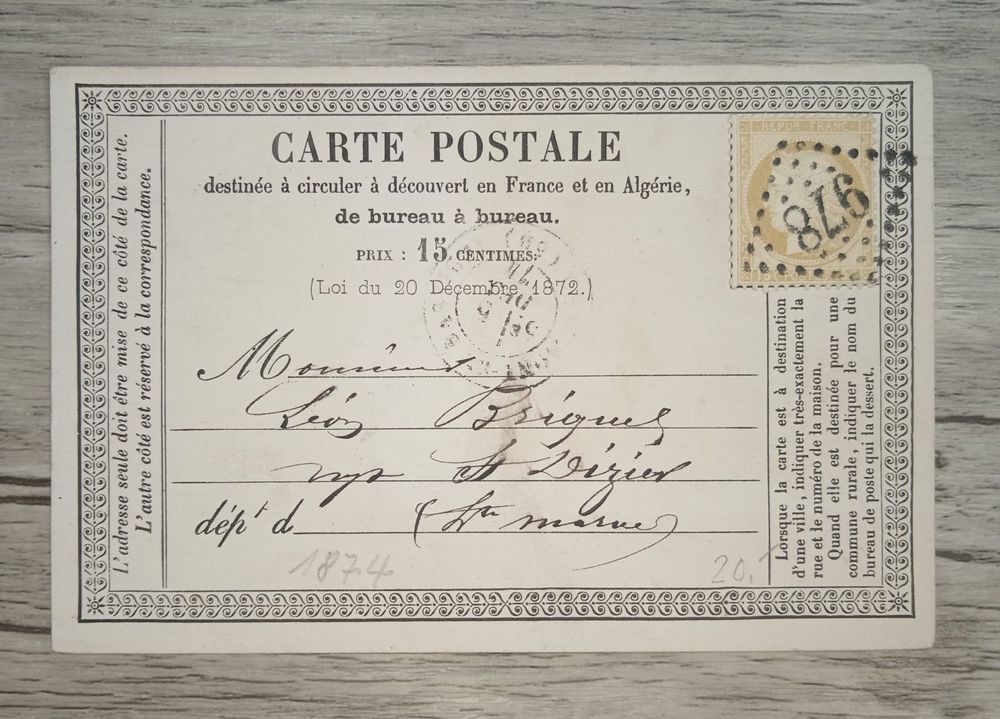 CARTE POSTALE
destinée à circuler à découvert en France et en Algérie,
de bureau à bureau.
PRIX : 15 CENTIMES.
(Loi du 20 Décembre 1872.)
Monsieur
Léon Brignel
St Dizier
dép<sup>t</sup> d (H<sup>te</sup> marne)
1874
20.
L'adresse seule doit être mise de ce côté de la carte.
L'autre côté est réservé à la correspondance.
REPUB. FRANC.
978
Lorsque la carte est à destination
d'une ville, indiquer très-exactement la
rue et le numéro de la maison.
Quand elle est destinée pour une
commune rurale, indiquer le nom du
bureau de poste qui la dessert.